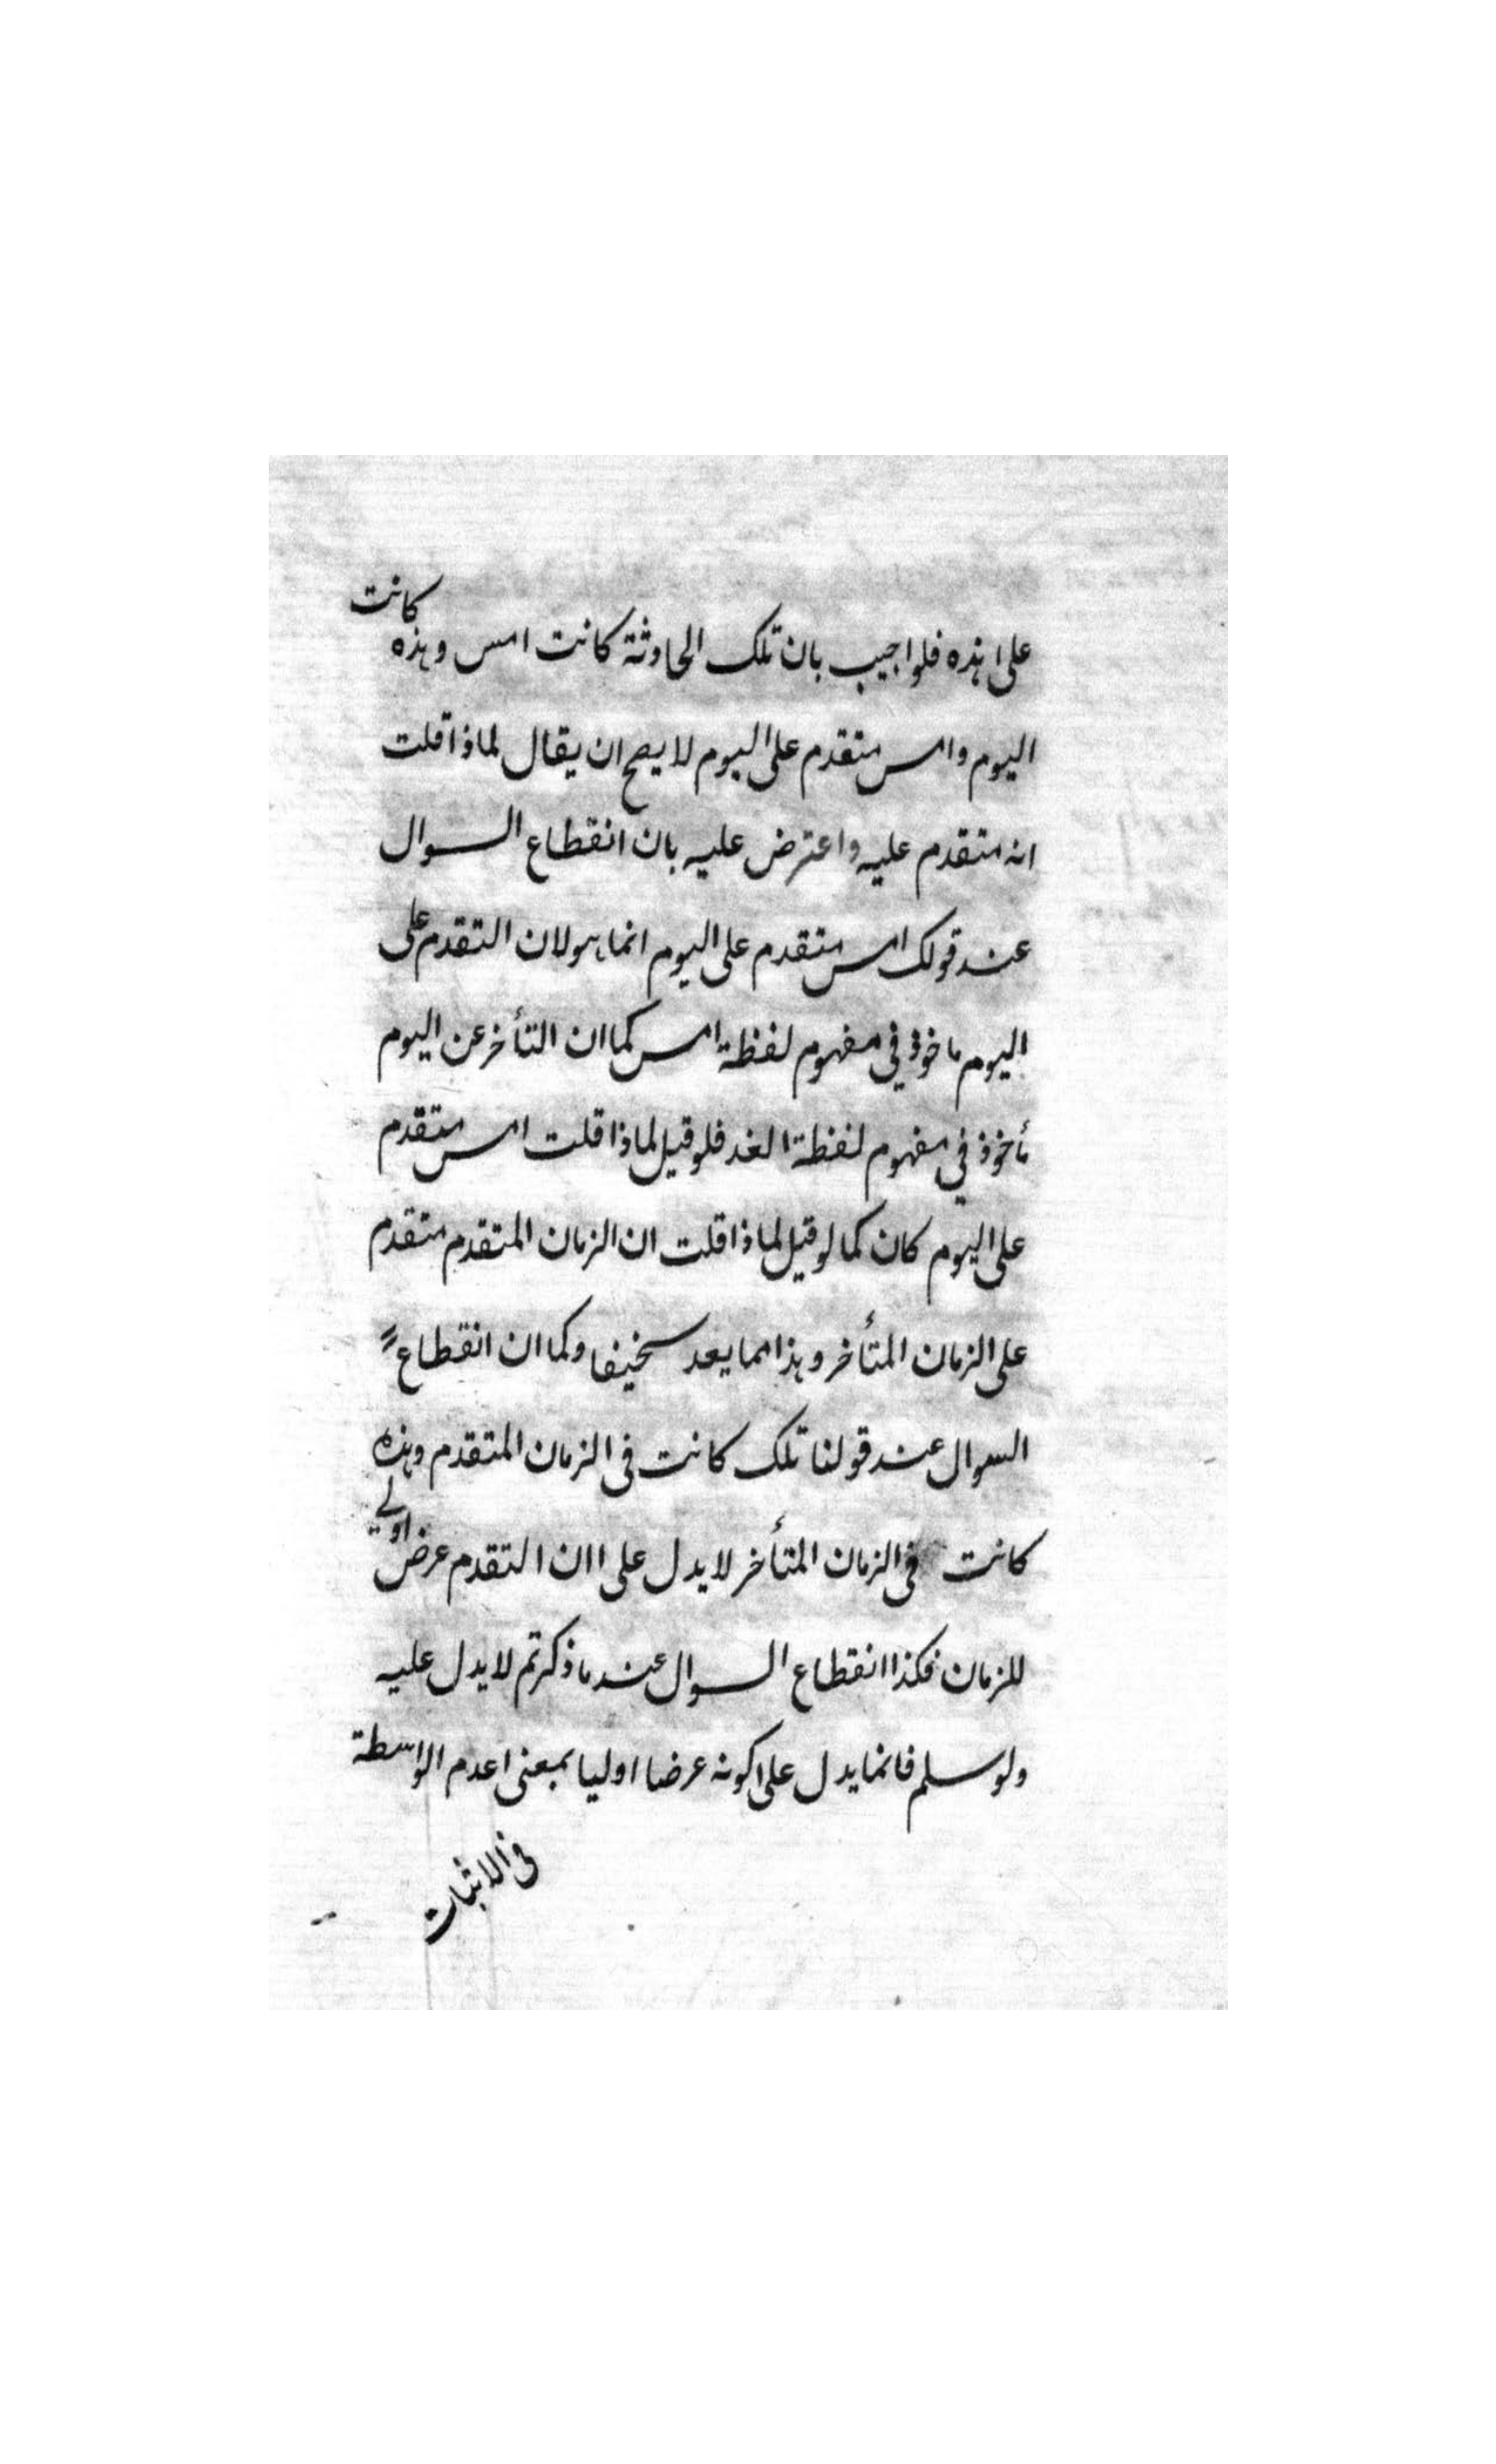 على هذه فلو اجيب بان تلك الحادثة كانت امس وهذه كانت
اليوم وامس متقدم على اليوم لا يصح ان يقال لماذا قلت
انه متقدم عليه واعترض عليه بان انقطاع السوال
عند قولك امس متقدم على اليوم انما هو لان التقدم على
اليوم ماخوذ في مفهوم لفظة امس كما ان التأخر عن اليوم
مأخوذ في مفهوم لفظة الغد فلو قيل لماذا قلت امس متقدم
على اليوم كان كما لو قيل لماذا قلت ان الزمان المتقدم متقدم
على الزمان المتأخر وهذا مما يعد سخيفا وكما ان انقطاع
السوال عند قولنا تلك كانت فى الزمان المتقدم وهذه
كانت فى الزمان المتأخر لا يدل على ان التقدم عرض اولي
للزمان فكذا انقطاع السوال عند ما ذكرتم لا يدل عليه
ولو سلم فانما يدل على كونه عرضا اوليا بمعنى عدم الواسطة
فى الاثبات